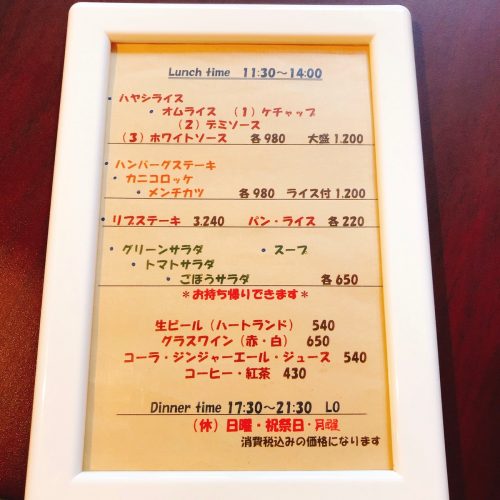 Lunch time 11:30～14:00
・ハヤシライス
・オムライス （１）ケチャップ
（２）デミソース
（３）ホワイトソース 各980 大盛1.200
・ハンバーグステーキ
・カニコロッケ
・メンチカツ 各980 ライス付1.200
・リブステーキ 3.240 パン・ライス 各220
・グリーンサラダ ・スープ
・トマトサラダ
・ごぼうサラダ 各650
＊お持ち帰りできます＊
生ビール（ハートランド） 540
グラスワイン（赤・白） 650
コーラ・ジンジャーエール・ジュース 540
コーヒー・紅茶 430
Dinner time 17:30～21:30 LO
（休）日曜・祝祭日・月曜
消費税込みの価格になります